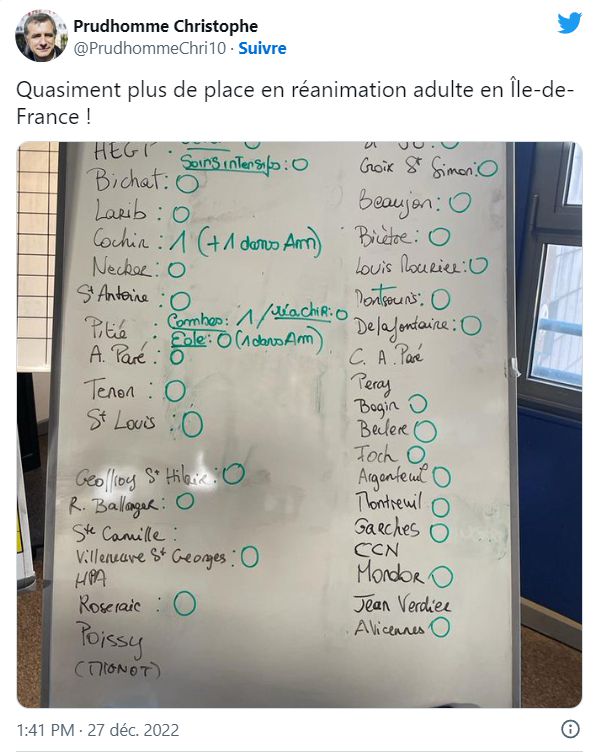 Prudhomme Christophe
@PrudhommeChri10 · Suivre
Quasiment plus de place en réanimation adulte en Île-de-
France !
HEGP :
Soins intensifs : 0
Bichat : 0
Larib : 0
Cochin : 1 (+ 1 dans Am)
Necker : 0
St Antoine : 0
Pitié : Combes : 1 / Réa chir : 0
Eole : 0 (1 dans Am)
A. Paré : 0
Tenon : 0
St Louis : 0
Geoffroy St Hilaire : 0
R. Ballanger : 0
Ste Camille :
Villeneuve St Georges : 0
HPA
Roseraie : 0
Poissy
(MIGNOT)
Croix St Simon : 0
Beaujon : 0
Bicêtre : 0
Louis Mourier : 0
Montsouris : 0
Delafontaine : 0
C. A. Paré
Percy
Begin 0
Beclere 0
Foch 0
Argenteuil 0
Montreuil 0
Garches 0
CCN
Mondor 0
Jean Verdier
Avicennes 0
1:41 PM · 27 déc. 2022